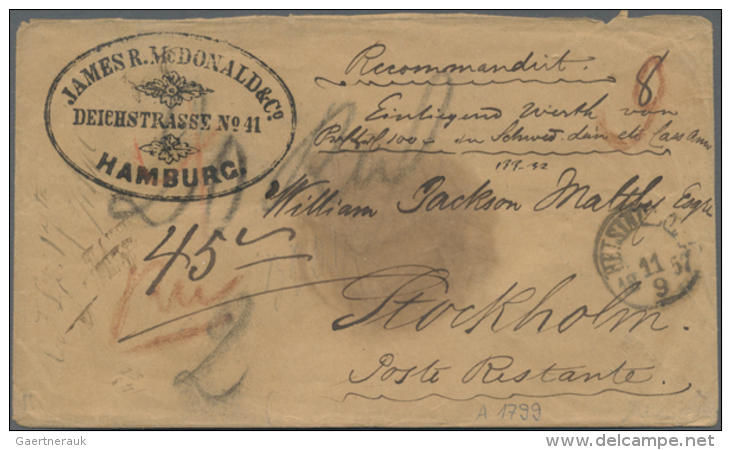 JAMES R. McDONALD & Co.
DEICHSTRASSE No 41
HAMBURG.
Recommandirt.
8
Einliegend Werth von
100 in Schwed
William Jackson Maltby Esqre
45
HELSING
11
9
57
2
Stockholm.
Poste Restante.
A 1799
Gaertnerauk
© DELCAMPE.NET